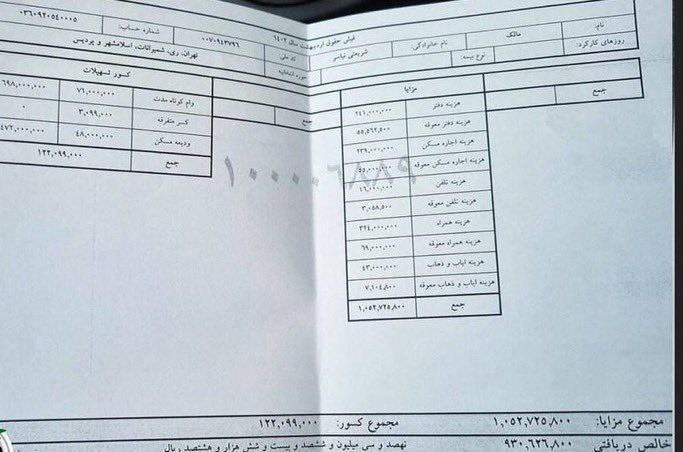 فیش حقوق اردیبهشت سال ۱۴۰۲
شماره حساب: ۰۳۶۰۹۲۰۵۴۰۰۰۵
نام: مالک نام خانوادگی: شریعتی نیاسر کد ملی ۰۰۷۰۹۱۳۷۹۶
روزهای کارکرد: نوع بیمه: حوزه انتخابیه تهران، ری، شمیرانات، اسلامشهر و پردیس
جمع
مزایا
هزینه دفتر ۲۴۱,۰۰۰,۰۰۰
هزینه دفتر معوقه ۵۵,۵۶۲,۵۰۰
هزینه اجاره مسکن ۲۳۹,۰۰۰,۰۰۰
هزینه اجاره مسکن معوقه
هزینه تلفن ۱۶,۰۰۰,۰۰۰
هزینه تلفن معوقه ۳,۰۵۸,۵۰۰
هزینه همراه ۳۲۴,۰۰۰,۰۰۰
هزینه همراه معوقه ۶۹,۰۰۰,۰۰۰
هزینه ایاب و ذهاب ۴۳,۰۰۰,۰۰۰
هزینه ایاب و ذهاب معوقه ۷,۱۰۴,۸۰۰
جمع ۱,۰۵۲,۷۲۵,۸۰۰
جمع
کسور تسهیلات
وام کوتاه مدت ۷۱,۰۰۰,۰۰۰ ۶۹۸,۰۰۰,۰۰۰
کسر متفرقه ۳,۰۹۹,۰۰۰ ۰
ودیعه مسکن ۴۸,۰۰۰,۰۰۰ ۴۷۲,۰۰۰,۰۰۰
جمع ۱۲۲,۰۹۹,۰۰۰
مجموع مزایا: ۱,۰۵۲,۷۲۵,۸۰۰ مجموع کسور: ۱۲۲,۰۹۹,۰۰۰
خالص دریافتی ۹۳۰,۶۲۶,۸۰۰ نهصد و سی میلیون و ششصد و بیست و شش هزار و هشتصد ریال